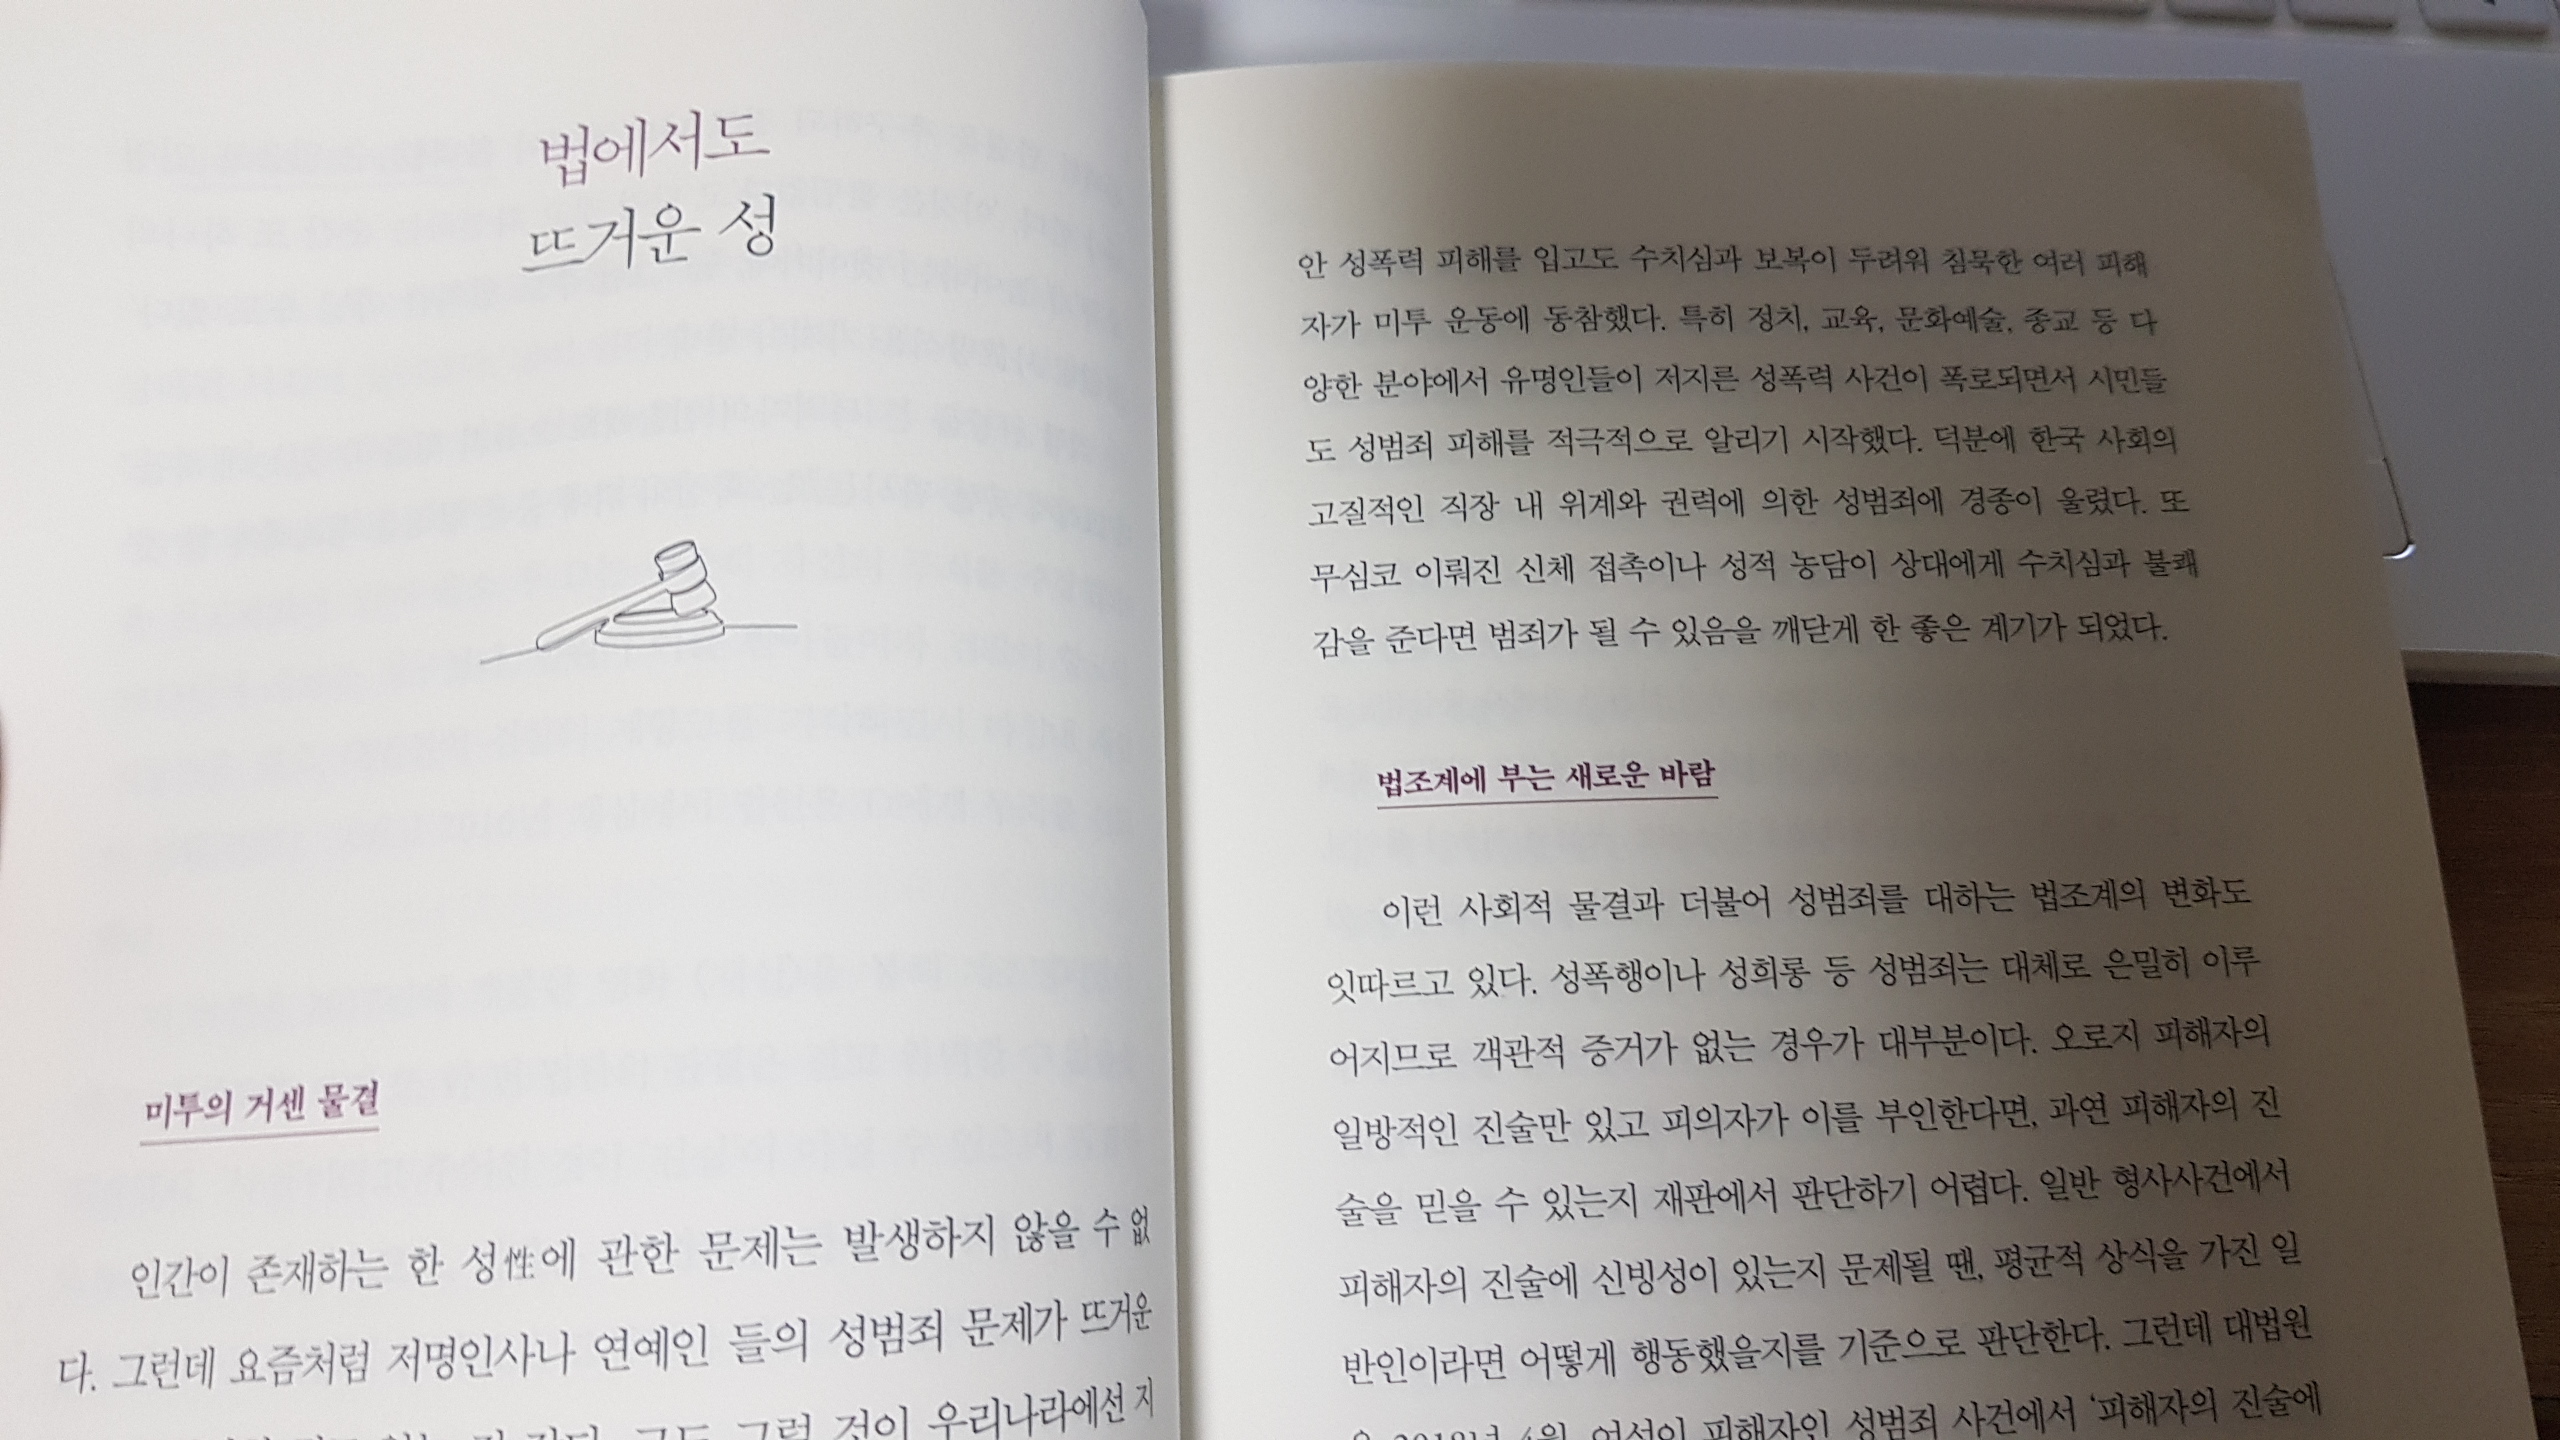 법에서도
뜨거운 성
미투의 거센 물결
인간이 존재하는 한 성性에 관한 문제는 발생하지 않을 수 없
다. 그런데 요즘처럼 저명인사나 연예인 들의 성범죄 문제가 뜨거운
그럴 것이 우리나라에선 지
안 성폭력 피해를 입고도 수치심과 보복이 두려워 침묵한 여러 피해
자가 미투 운동에 동참했다. 특히 정치, 교육, 문화예술, 종교 등 다
양한 분야에서 유명인들이 저지른 성폭력 사건이 폭로되면서 시민들
도 성범죄 피해를 적극적으로 알리기 시작했다. 덕분에 한국 사회의
고질적인 직장 내 위계와 권력에 의한 성범죄에 경종이 울렸다. 또
무심코 이뤄진 신체 접촉이나 성적 농담이 상대에게 수치심과 불쾌
감을 준다면 범죄가 될 수 있음을 깨닫게 한 좋은 계기가 되었다.
법조계에 부는 새로운 바람
이런 사회적 물결과 더불어 성범죄를 대하는 법조계의 변화도
잇따르고 있다. 성폭행이나 성희롱 등 성범죄는 대체로 은밀히 이루
어지므로 객관적 증거가 없는 경우가 대부분이다. 오로지 피해자의
일방적인 진술만 있고 피의자가 이를 부인한다면, 과연 피해자의 진
술을 믿을 수 있는지 재판에서 판단하기 어렵다. 일반 형사사건에서
피해자의 진술에 신빙성이 있는지 문제될 땐, 평균적 상식을 가진 일
반인이라면 어떻게 행동했을지를 기준으로 판단한다. 그런데 대법원
은 2018년 4월, 여성이 피해자인 성범죄 사건에서 ‘피해자의 진술에